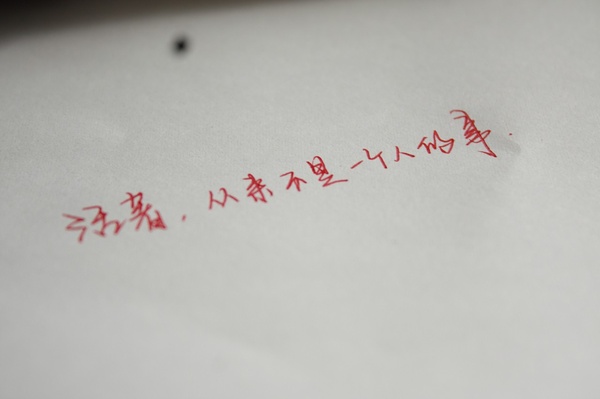 活着，从来不是一个人的事.